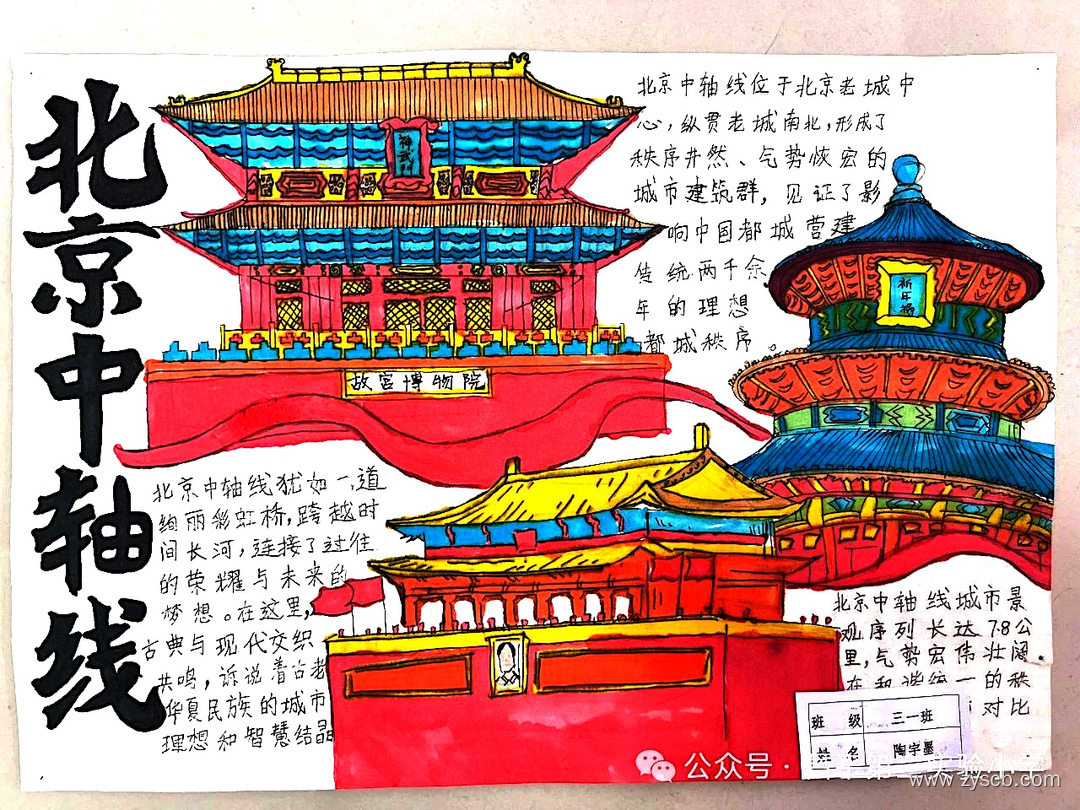 北京中轴线
北京中轴线位于北京老城中
心，纵贯老城南北，形成了
秩序井然、气势恢宏的
城市建筑群，见证了影
响中国都城营建
传统两千余
年的理想
都城秩序。
神武门
故宫博物院
祈年
北京中轴线犹如一道
绚丽彩虹桥，跨越时
间长河，连接了过往
的荣耀与未来的
梦想。在这里，
古典与现代交织
共鸣，诉说着古老
华夏民族的城市
理想和智慧结晶
北京中轴线城市景
观序列长达7.8公
里，气势宏伟壮阔．
在和谐统一的秩
对比
班级 三一班
姓名 陶宇墨
公众号·
实验小学
www.zyscb.com